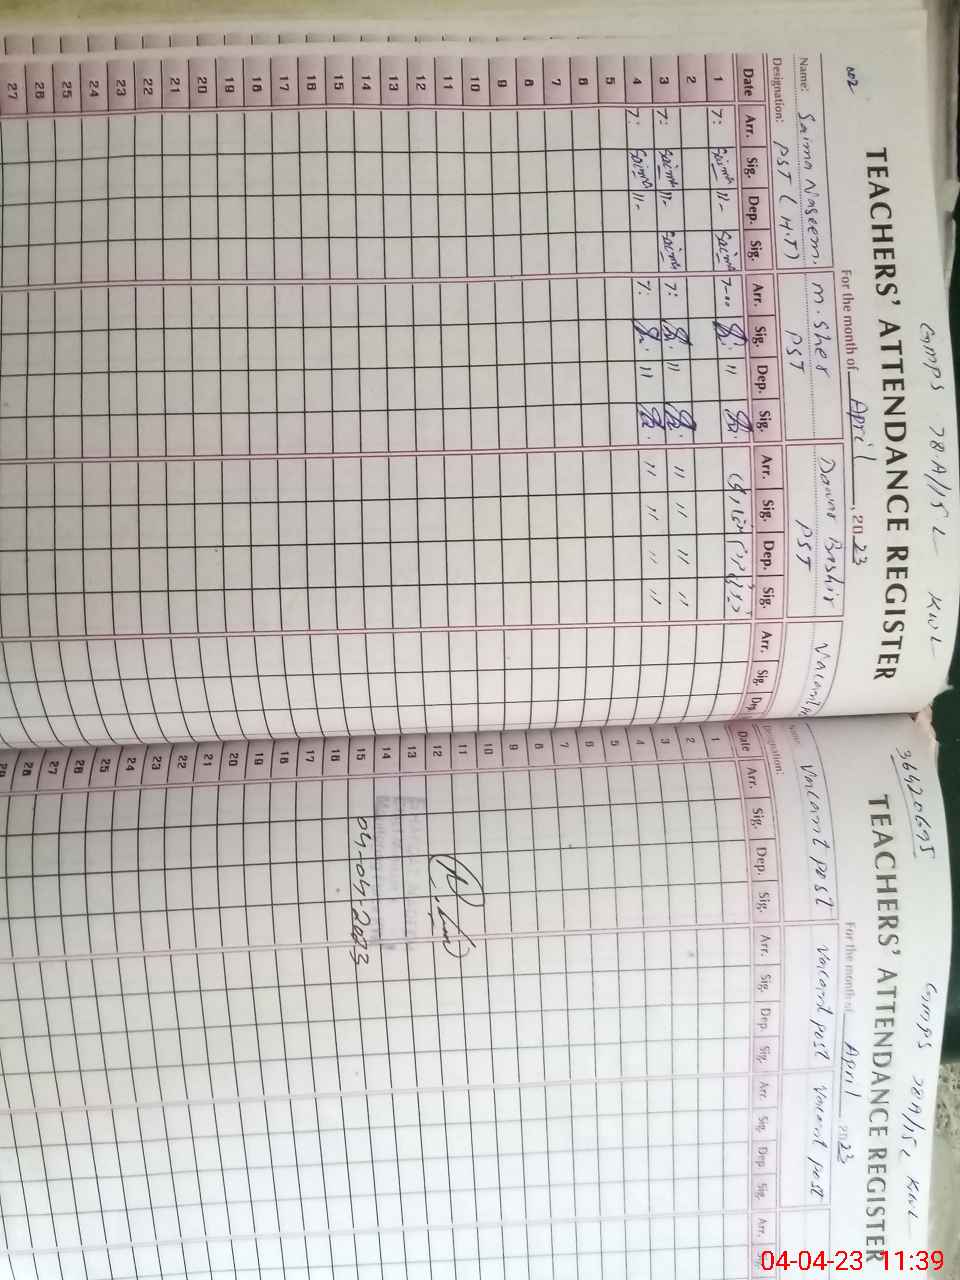 GMPS 78A/15 L KWL
TEACHERS' ATTENDANCE REGISTER
002
For the month of April, 2023
Name: Saima Naseem. M. Sher Dawar Bashir Vacant
Designation: PST (H.T) PST PST
Date Arr. Sig. Dep. Sig. Arr. Sig. Dep. Sig. Arr. Sig. Dep. Sig. Arr. Sig. Dep.
1 7: Saima 11- Saima 7-00 11
2
3 7: Saima 11- Saima 7: 11 " " " "
4 7: Saima 11- 7: 11 " " " "
5
6
7
8
9
10
11
12
13
14
15
16
17
18
19
20
21
22
23
24
25
26
27
GMPS 78A/15 L KWL
36420695
TEACHERS' ATTENDANCE REGISTER
For the month of April 2023
Name: Vacant post Vacant post Vacant post
Designation:
Date Arr. Sig. Dep. Sig. Arr. Sig. Dep. Sig. Arr. Sig. Dep. Sig. Arr.
1
2
3
4
5
6
7
8
9
10
11
12
13
14
15
16
17
18
19
20
21
22
23
24
25
26
27
28
29
04-04-2023
04-04-23 11:39